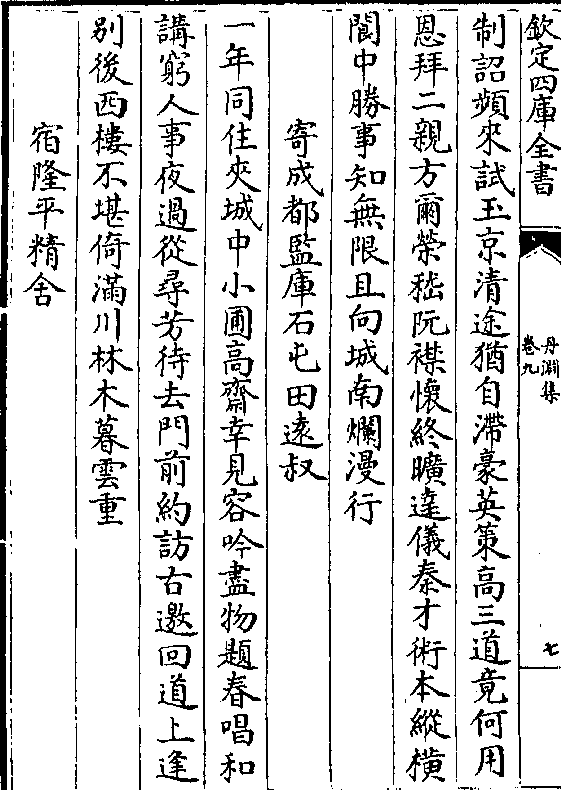 欽定四庫全書
丹淵集
卷九
七
制詔頻來試玉京清途猶自滯豪英策高三道竟何用
恩拜二親方爾榮嵇阮襟懷終曠達儀秦才術本縱橫
閬中勝事知無限且向城南爛漫行
寄成都監庫石屯田遠叔
一年同住夾城中小圃高齋幸見容吟盡物題春唱和
講窮人事夜過從尋芳待去門前約訪古邀回道上逢
別後西樓不堪倚滿川林木暮雲重
宿隆平精舍